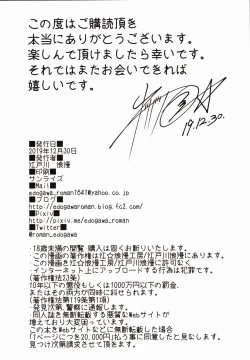 この度はご購読頂き
本当にありがとうございます。
楽しんで頂けましたら幸いです。
それではまたお会いできれば
嬉しいです。
19.12.30.
■発行日■
2019年12月30日
■発行者■
江戸川 浪漫
■印刷■
サンライズ
■Mail■
edogawa_roman1647@yahoo.co.jp
■ブログ■
http://edogawaroman.blog.fc2.com/
■Pixiv■
http://pixiv.me/edogawa_roman
■Twitter■
@roman_edogawa
・18歳未満の閲覧・購入は固くお断りいたします。
・この漫画の著作権は江☆浪漫工房/江戸川浪漫にあります。
・この漫画を江☆浪漫工房/江戸川浪漫に許可なく
インターネット上にアップロードする行為は犯罪です。
(著作権法23条)
10年以下の懲役もしくは1000万円以下の罰金、
またはその両方が同時に科せられます。
(著作権法第119条第1項)
・発見次第、警察に通報します。
・同人誌を無断転載する悪質なWebサイトが
増えており大変困っています。
この本をWebサイトなどに無断転載した場合
「1ページにつき20,000円」払う事に同意したと見なします。
見つけ次第請求させて頂きます。